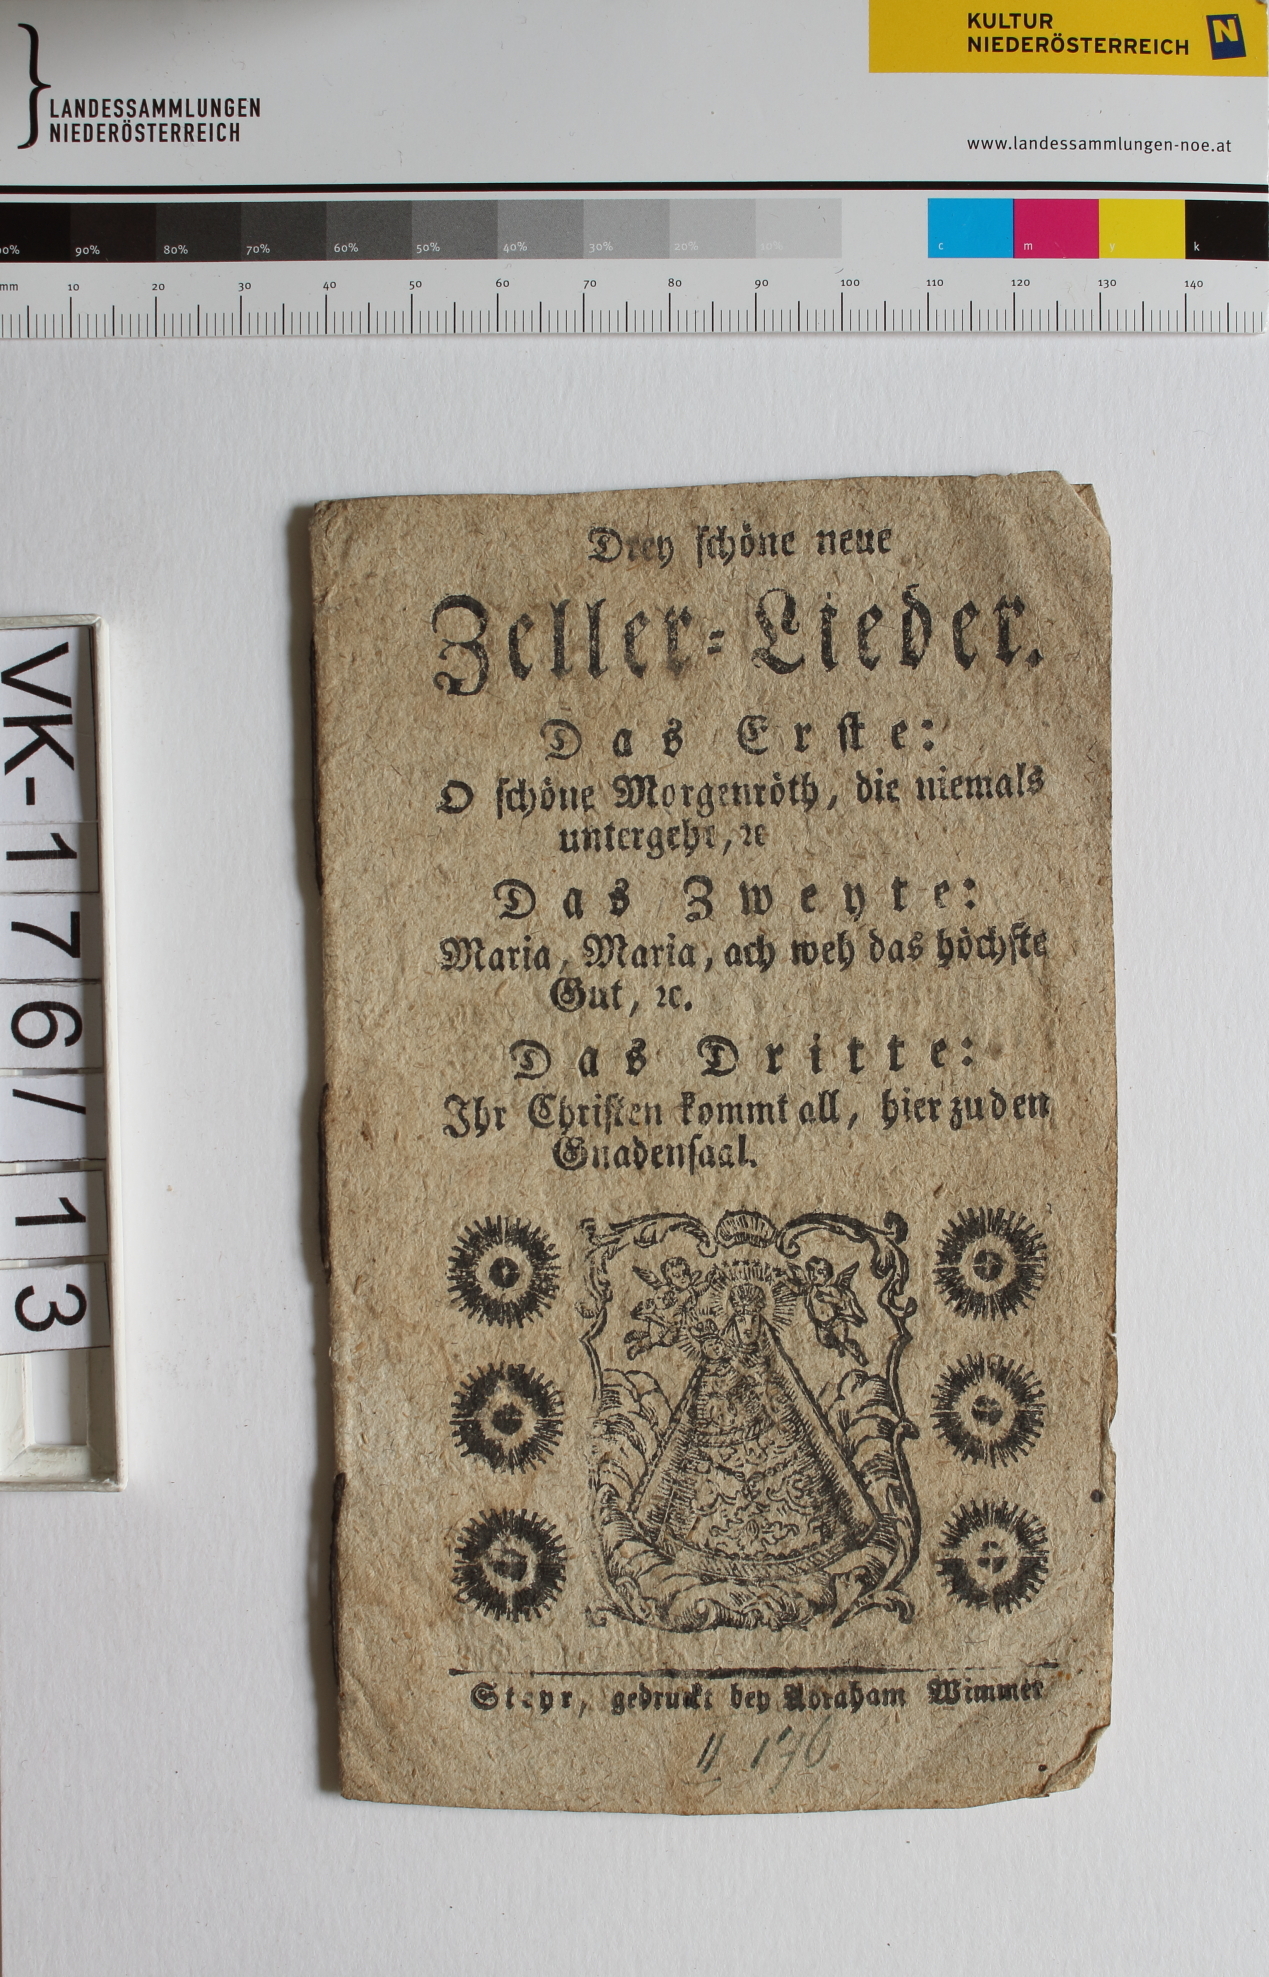 KULTUR
NIEDERÖSTERREICH
N
LANDESSAMMLUNGEN
NIEDERÖSTERREICH
www.landessammlungen-noe.at
90% 80% 70% 60% 50% 40% 30% 20% 10% c m y k
mm 10 20 30 40 50 60 70 80 90 100 110 120 130 140
VK-176/113
Drey schöne neue
Zeller-Lieder.
Das Erste:
O schöne Morgenröth, die niemals
untergeht, ꝛc
Das Zweyte:
Maria, Maria, ach weh das höchste
Gut, ꝛc.
Das Dritte:
Ihr Christen kommt all, hier zu den
Gnadensaal.
Steyr, gedruckt bey Abraham Wimmer